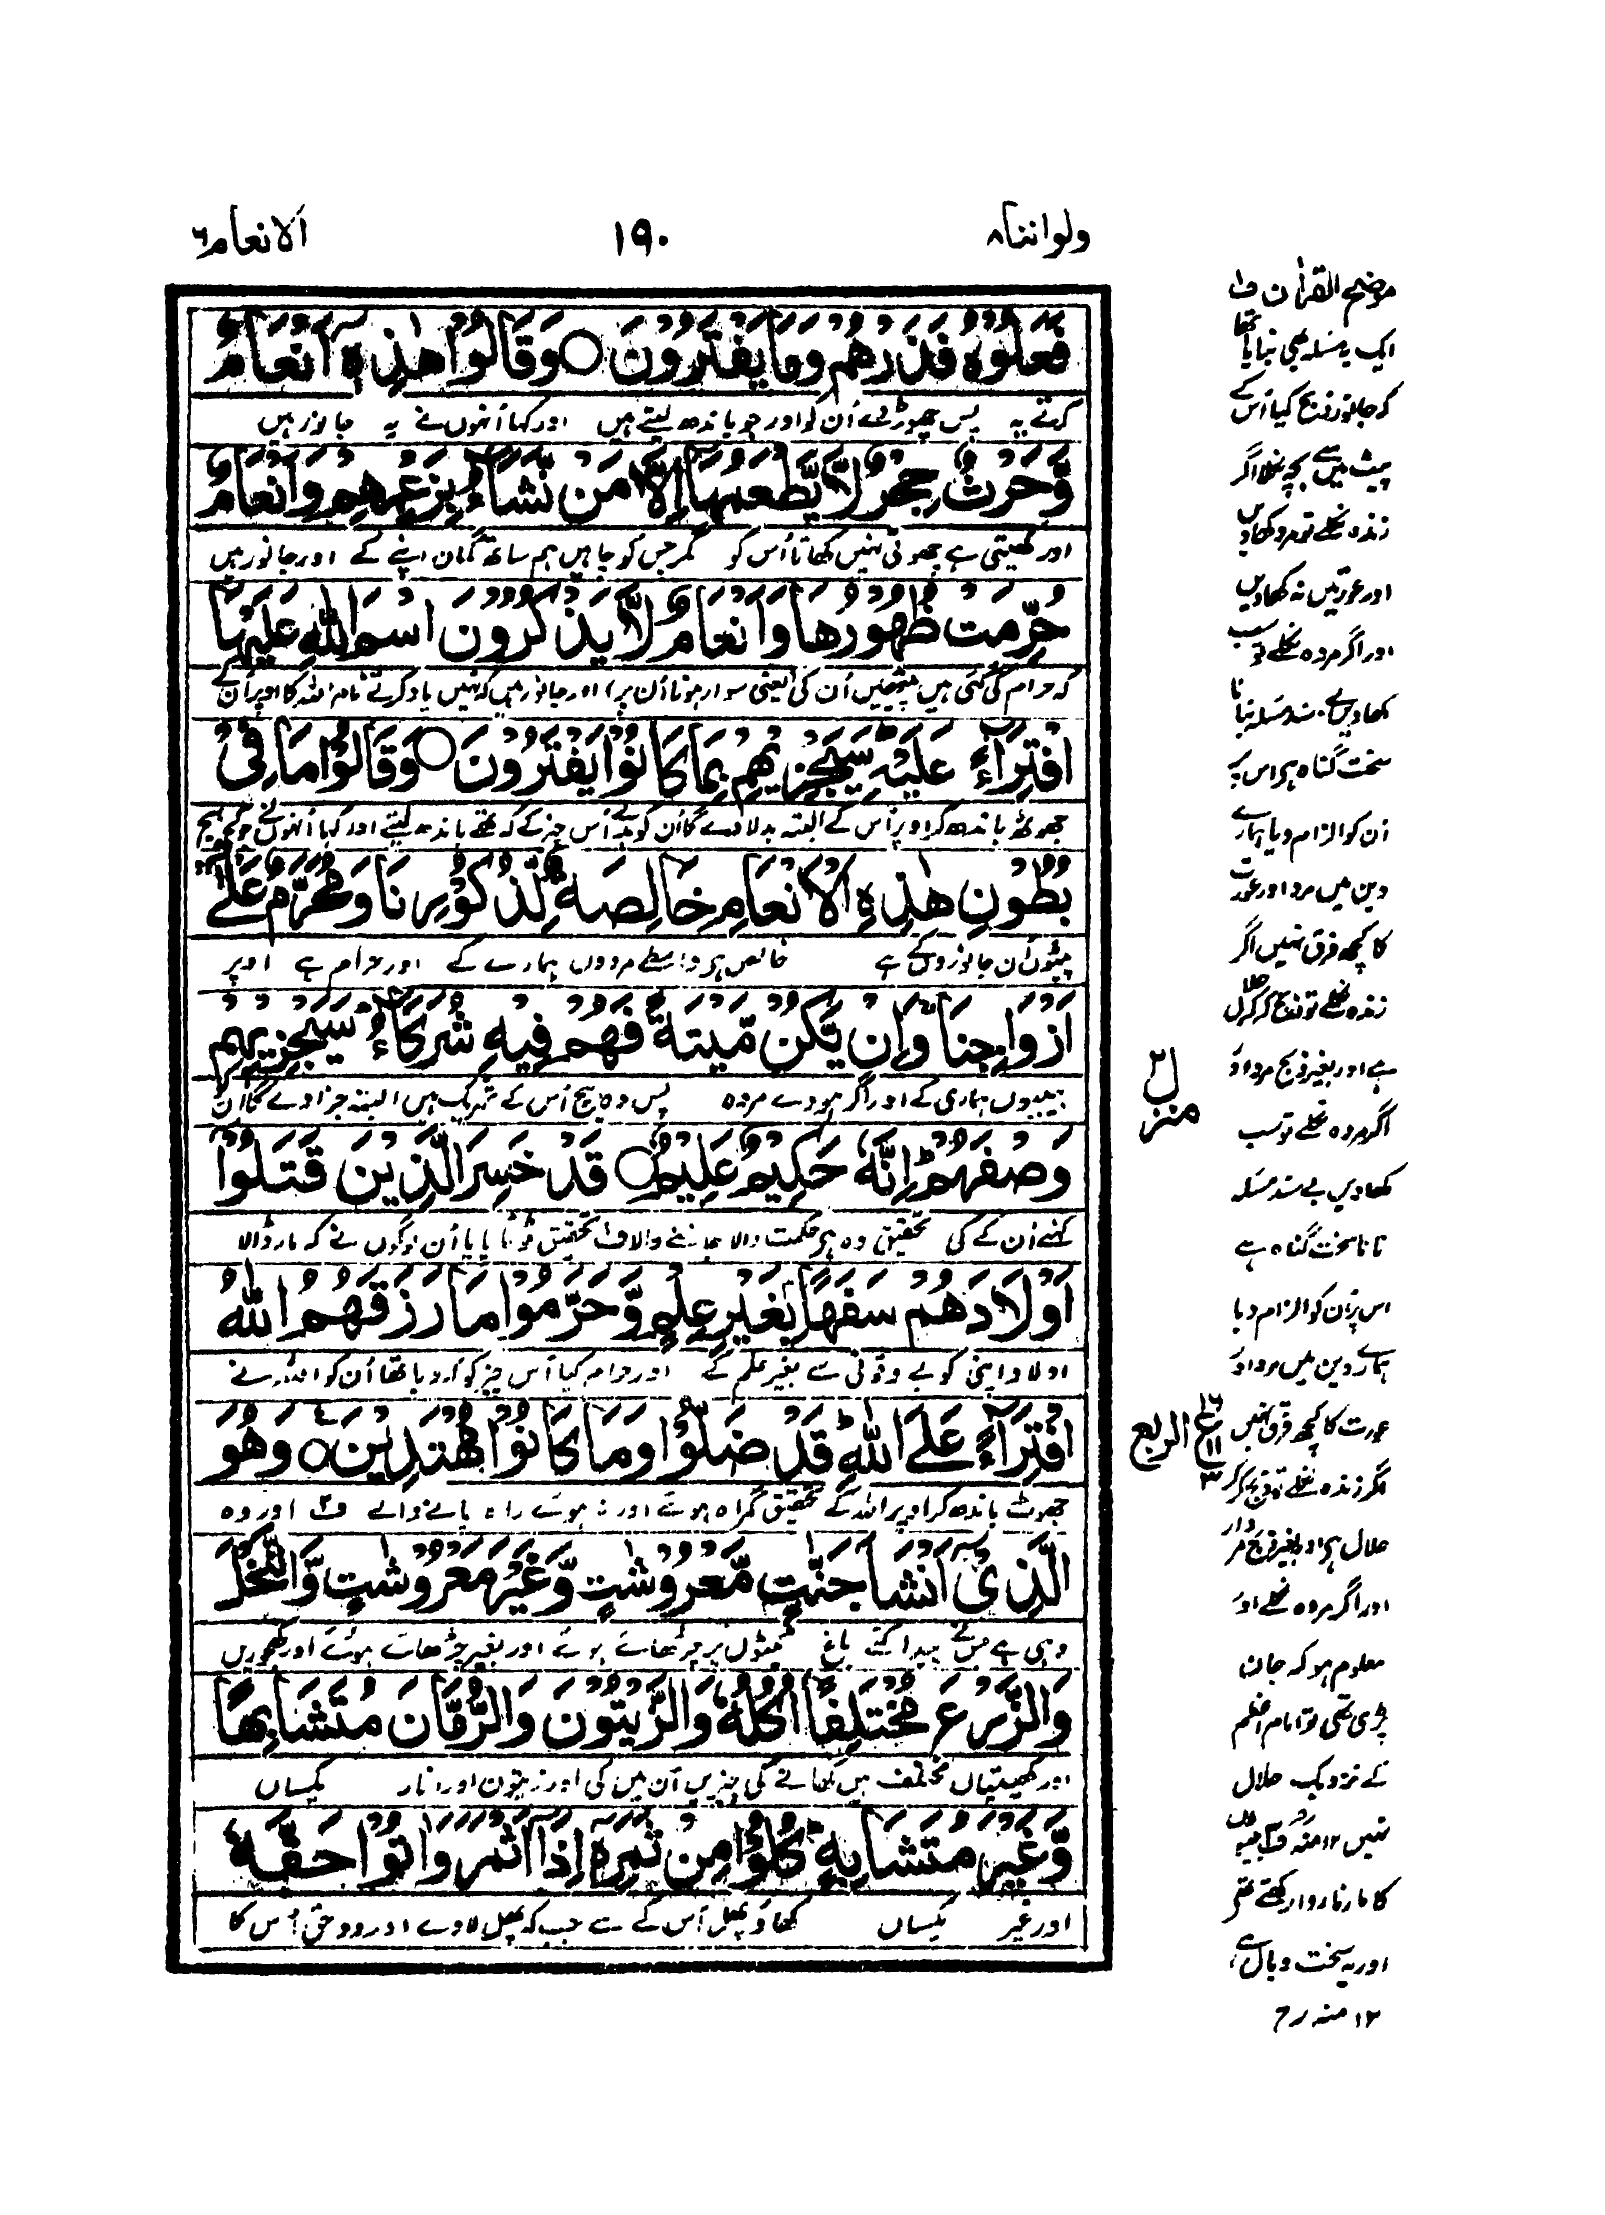 ولواننا ۸
۱۹۰
الانعام ۶
فَعَلُوْهُ فَذَرْهُمْ وَمَا يَفْتَرُوْنَ ○ وَقَالُوْا هٰذِهٖٓ اَنْعَامٌ
کرتے یہ پس چھوڑ دے اُن کو اور جو باندھ لیتے ہیں اور کہا اُنہوں نے یہ جانور ہیں
وَّحَرْثٌ حِجْرٌ لَّا يَطْعَمُهَآ اِلَّا مَنْ نَّشَآءُ بِزَعْمِهِمْ وَاَنْعَامٌ
اور کھیتی ہے اچھوتی نہیں کھاتا اُس کو مگر جس کو چاہیں ہم ساتھ گمان اپنے کے اور جانور ہیں
حُرِّمَتْ ظُهُوْرُهَا وَاَنْعَامٌ لَّا يَذْكُرُوْنَ اسْمَ اللّٰهِ عَلَيْهَا
کہ حرام کی گئی ہیں پیٹھیں اُن کی (یعنی سوار ہونا اُن پر) اور جانور ہیں کہ نہیں یاد کرتے نام اللہ کا اوپر اُن کے
افْتِرَآءً عَلَيْهِ سَيَجْزِيْهِمْ بِمَا كَانُوْا يَفْتَرُوْنَ ○ وَقَالُوْا مَا فِيْ
جھوٹھ باندھ کر اوپر اُس کے البتہ بدلا دے گا اُن کو بدلے اُس چیز کے کہ تھے باندھ لیتے اور کہا اُنہوں نے جو کچھ بیچ
بُطُوْنِ هٰذِهِ الْاَنْعَامِ خَالِصَةٌ لِّذُكُوْرِنَا وَمُحَرَّمٌ عَلٰٓى
پیٹوں اُن جانوروں کے ہے خالص ہے واسطے مردوں ہمارے کے اور حرام ہے اوپر
اَزْوَاجِنَا وَاِنْ يَّكُنْ مَّيْتَةً فَهُمْ فِيْهِ شُرَكَآءُ سَيَجْزِيْهِمْ
بیبیوں ہماری کے اور اگر ہووے مردہ پس وہ بیچ اُس کے شریک ہیں البتہ جزا دے گا اُن
وَصْفَهُمْ اِنَّهٗ حَكِيْمٌ عَلِيْمٌ ○ قَدْ خَسِرَ الَّذِيْنَ قَتَلُوْٓا
کہنے اُن کے کی تحقیق وہ ہے حکمت والا جاننے والا ف۱ تحقیق ٹوٹا پایا اُن لوگوں نے کہ مار ڈالا
اَوْلَادَهُمْ سَفَهًا بِغَيْرِ عِلْمٍ وَّحَرَّمُوْا مَا رَزَقَهُمُ اللّٰهُ
اولاد اپنی کو بے وقوفی سے بغیر علم کے اور حرام کیا اُس چیز کو کہ دیا تھا اُن کو اللہ نے
افْتِرَآءً عَلَى اللّٰهِ قَدْ ضَلُّوْا وَمَا كَانُوْا مُهْتَدِيْنَ ○ وَهُوَ
جھوٹ باندھ کر اوپر اللہ کے تحقیق گمراہ ہوئے اور نہ ہوئے راہ پانے والے ف۲ اور وہ
الَّذِيْٓ اَنْشَاَ جَنّٰتٍ مَّعْرُوْشٰتٍ وَّغَيْرَ مَعْرُوْشٰتٍ وَّالنَّخْلَ
وہی ہے جس نے پیدا کئے باغ ٹیٹوں پر چڑھائے ہوئے اور بغیر چڑھائے ہوئے اور کھجوریں
وَالزَّرْعَ مُخْتَلِفًا اُكُلُهٗ وَالزَّيْتُوْنَ وَالرُّمَّانَ مُتَشَابِهًا
اور کھیتیاں مختلف ہیں کھانے کی چیزیں اُن میں کی اور زیتون اور انار یکساں
وَّغَيْرَ مُتَشَابِهٍ كُلُوْا مِنْ ثَمَرِهٖٓ اِذَآ اَثْمَرَ وَاٰتُوْا حَقَّهٗ
اور غیر یکساں کھاؤ پھل اُس کے سے جب کہ پھل لاوے اور دو حق اُس کا
موضح القرآن ف۱
ایک یہ مسئلہ بھی بنایا تھا
کہ جانور ذبح کیا اُس کے
پیٹ میں سے بچہ نکلا اگر
زندہ نکلے تو مرد کھاویں
اور عورتیں نہ کھاویں
اور اگر مردہ نکلے تو سب
کھاویں بے سند مسئلہ بنانا
سخت گناہ ہے اس پر
اُن کو الزام دیا ہمارے
دین میں مرد اور عورت
کا کچھ فرق نہیں اگر
زندہ نکلے تو ذبح کر کر حلال
ہے اور بغیر ذبح مردار
اگر مردہ نکلے تو سب
کھاویں بے سند مسئلہ
بنانا سخت گناہ ہے
اس پر اُن کو الزام دیا
ہمارے دین میں مرد اور
عورت کا کچھ فرق نہیں
اگر زندہ نکلے تو ذبح کر کر
حلال ہے اور بغیر ذبح مردار
اور اگر مردہ نکلے اور
معلوم ہو کہ جان
پڑی تھی تو امام اعظم
کے نزدیک حلال
نہیں ۱۲ منہ رح ف۲
کا مارنا روا رکھتے تھے
اور یہ سخت وبال ہے
۱۲ منہ رح
منزل ۲
الربع
ع
۳